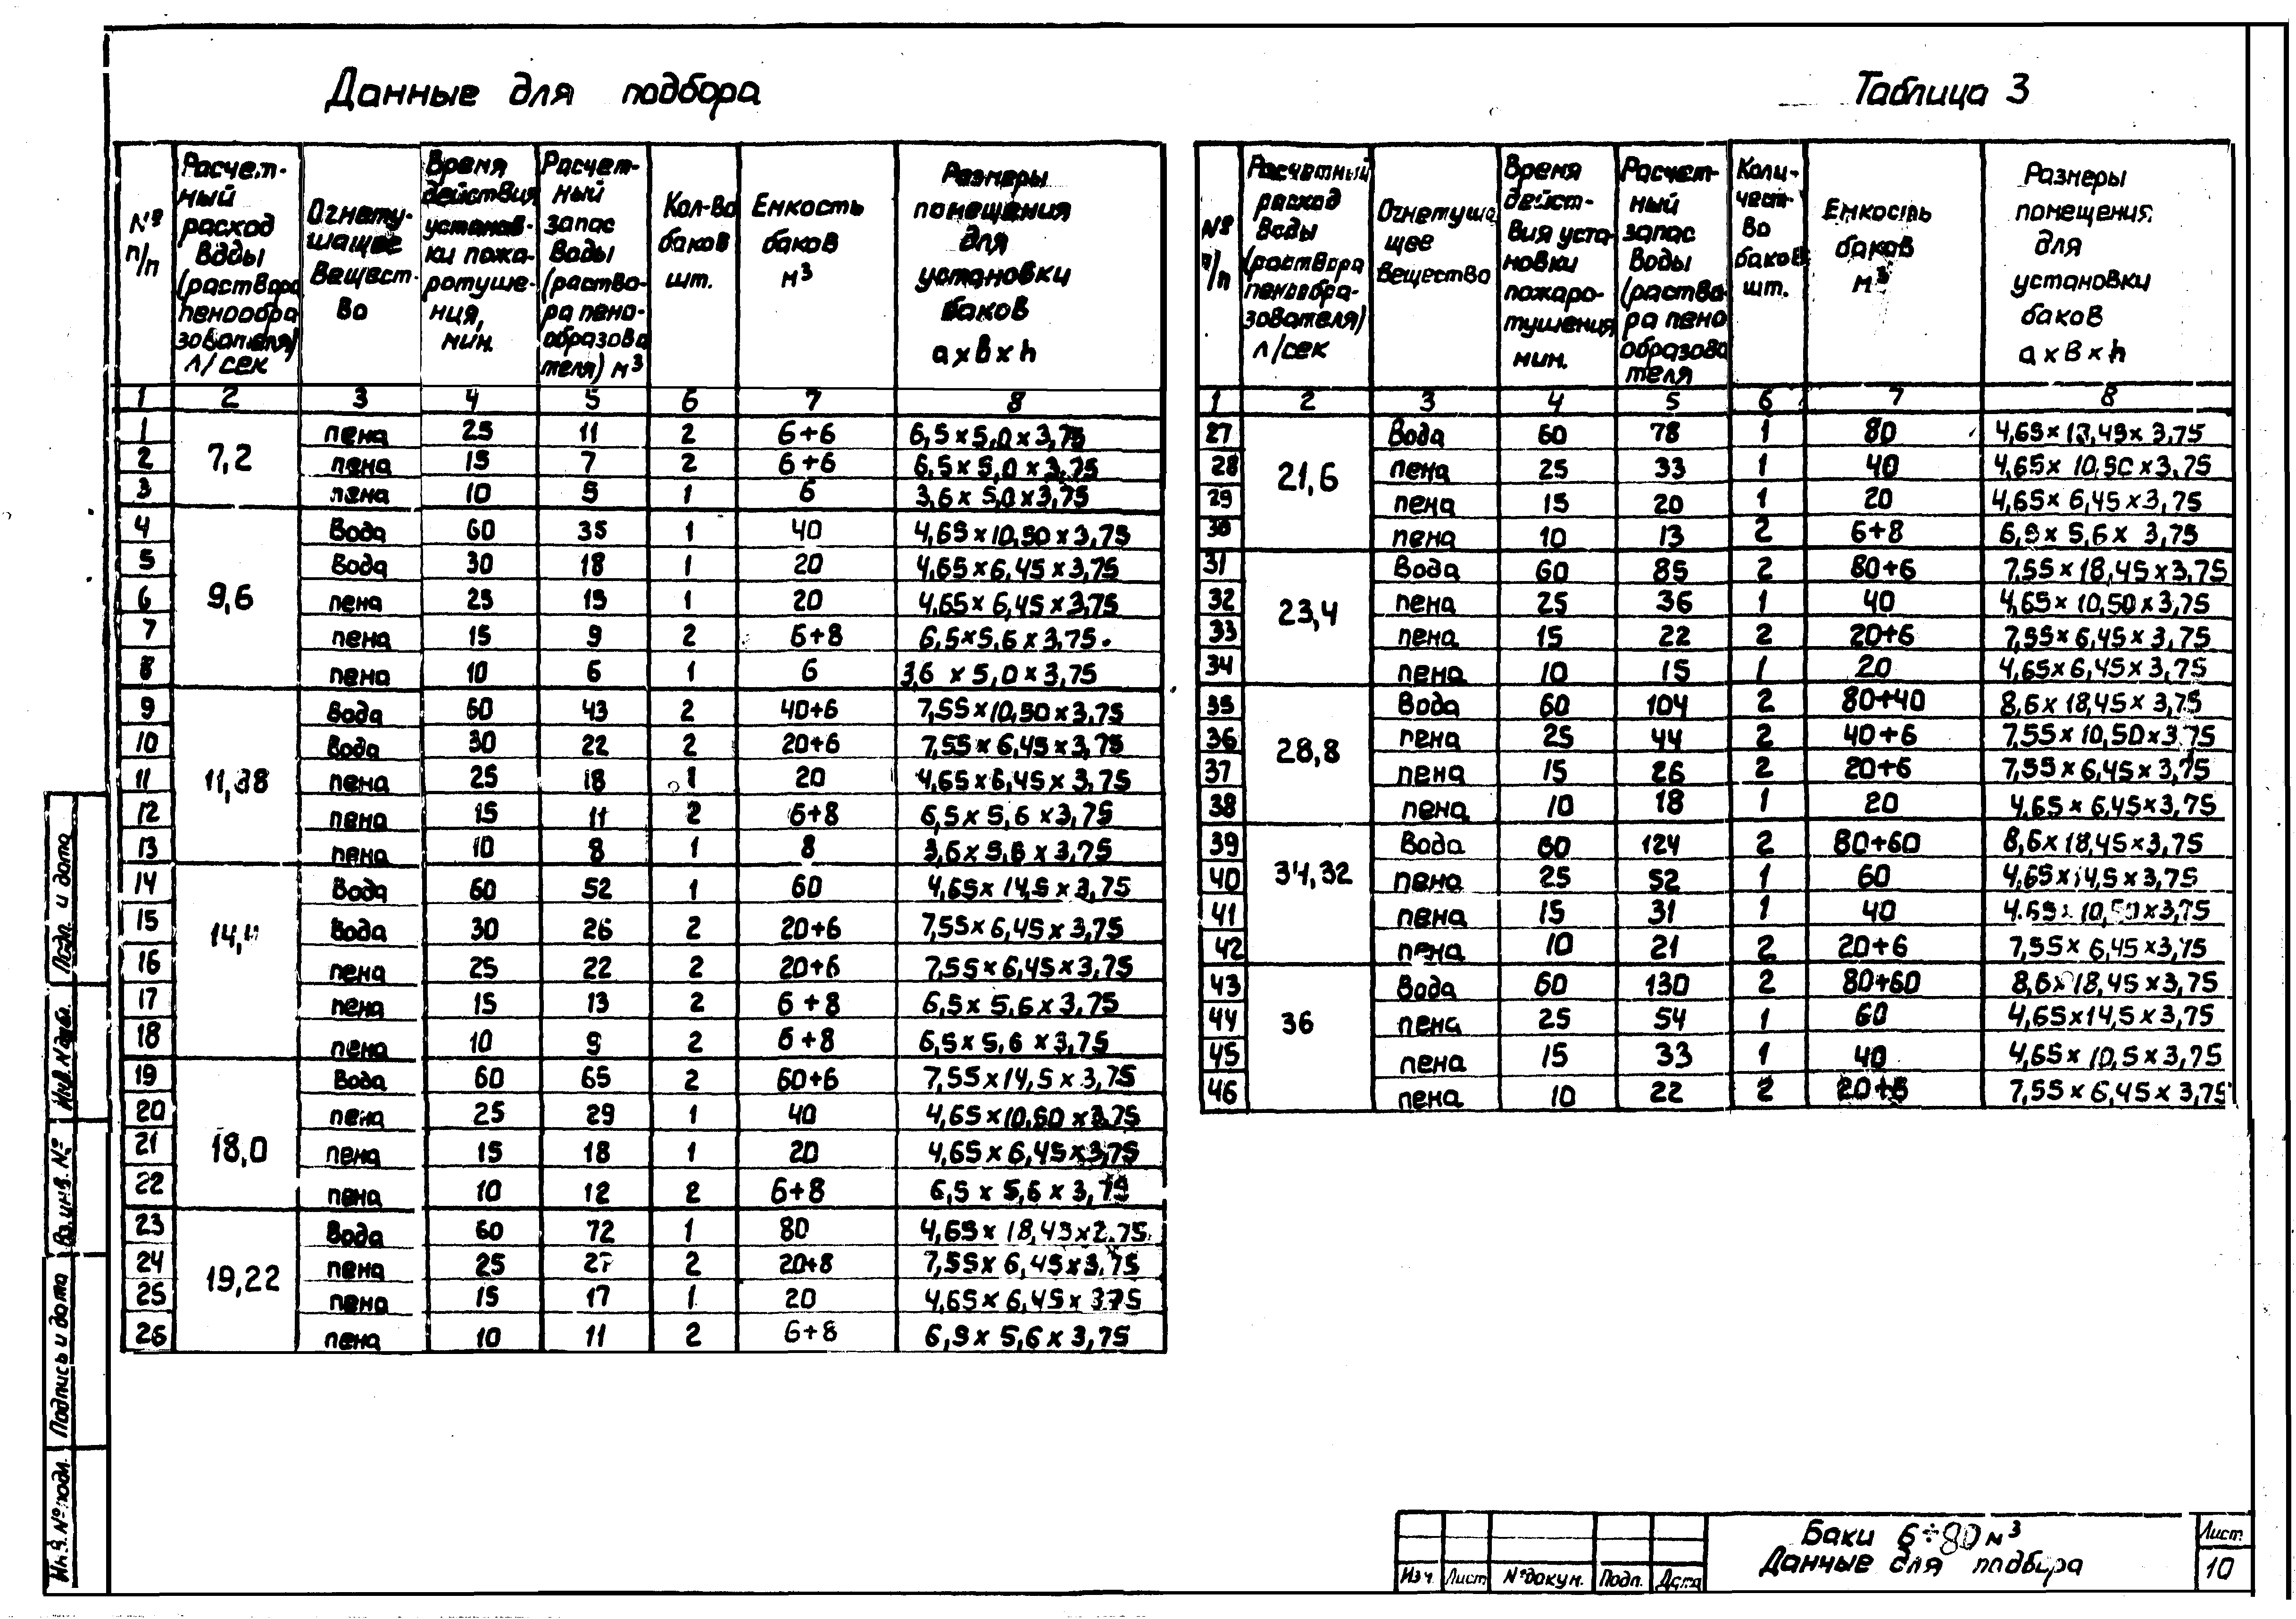 Данные для подбора
Таблица 3
№ п/п | Расчетный расход воды (раствора пенообразователя) л/сек | Огнетушащее вещество | Время действия установки пожаротушения, мин. | Расчетный запас воды (раствора пенообразователя) м³ | Кол-во баков шт. | Емкость баков м³ | Размеры помещения для установки баков а х в х h
1 2 3 4 5 6 7 8
1 7,2 пена 25 11 2 6+6 6,5×5,0×3,75
2 пена 15 7 2 6+6 6,5×5,0×3,75
3 пена 10 5 1 6 3,6×5,0×3,75
4 9,6 Вода 60 35 1 40 4,65×10,50×3,75
5 Вода 30 18 1 20 4,65×6,45×3,75
6 пена 25 15 1 20 4,65×6,45×3,75
7 пена 15 9 2 6+8 6,5×5,6×3,75
8 пена 10 6 1 6 3,6×5,0×3,75
9 11,88 Вода 60 43 2 40+6 7,55×10,50×3,75
10 Вода 30 22 2 20+6 7,55×6,45×3,75
11 пена 25 18 1 20 4,65×6,45×3,75
12 пена 15 11 2 6+8 6,5×5,6×3,75
13 пена 10 8 1 8 3,6×5,6×3,75
14 14,4 Вода 60 52 1 60 4,65×14,5×3,75
15 Вода 30 26 2 20+6 7,55×6,45×3,75
16 пена 25 22 2 20+6 7,55×6,45×3,75
17 пена 15 13 2 6+8 6,5×5,6×3,75
18 пена 10 9 2 6+8 6,5×5,6×3,75
19 18,0 Вода 60 65 2 60+6 7,55×14,5×3,75
20 пена 25 29 1 40 4,65×10,50×3,75
21 пена 15 18 1 20 4,65×6,45×3,75
22 пена 10 12 2 6+8 6,5×5,6×3,75
23 19,22 Вода 60 72 1 80 4,65×18,45×2.75
24 пена 25 27 2 20+8 7,55×6,45×3,75
25 пена 15 17 1 20 4,65×6,45×3,75
26 пена 10 11 2 6+8 6,5×5,6×3,75
№ п/п | Расчетный расход воды (раствора пенообразователя) л/сек | Огнетушащее вещество | Время действия установки пожаротушения, мин. | Расчетный запас воды (раствора пенообразователя | Количество баков шт. | Емкость баков м³ | Размеры помещения для установки баков а х в х h
1 2 3 4 5 6 7 8
27 21,6 Вода 60 78 1 80 4,65×18,45×3,75
28 пена 25 33 1 40 4,65×10,50×3,75
29 пена 15 20 1 20 4,65×6,45×3,75
30 пена 10 13 2 6+8 6,5×5,6×3,75
31 23,4 Вода 60 85 2 80+6 7,55×18,45×3,75
32 пена 25 36 1 40 4,65×10,50×3,75
33 пена 15 22 2 20+6 7,55×6,45×3,75
34 пена 10 15 1 20 4,65×6,45×3,75
35 28,8 Вода 60 104 2 80+40 8,6×18,45×3,75
36 пена 25 44 2 40+6 7,55×10,50×3,75
37 пена 15 26 2 20+6 7,55×6,45×3,75
38 пена 10 18 1 20 4,65×6,45×3,75
39 34,32 Вода 60 124 2 80+60 8,6×18,45×3,75
40 пена 25 52 1 60 4,65×14,5×3,75
41 пена 15 31 1 40 4.65×10,50×3,75
42 пена 10 21 2 20+6 7,55×6,45×3,75
43 36 Вода 60 130 2 80+60 8,6×18,45×3,75
44 пена 25 54 1 60 4,65×14,5×3,75
45 пена 15 33 1 40 4,65×10,5×3,75
46 пена 10 22 2 20+6 7,55×6,45×3,75
Подп. и дата
Инв. № дубл.
Вз. инв. №
Подпись и дата
Инв. № подл.
Изм. Лист № докум. Подп. Дата
Баки 6÷80 м³
Данные для подбора
Лист
10